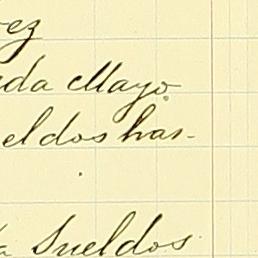 ez
da Mayo
eldos has-
Sueldos